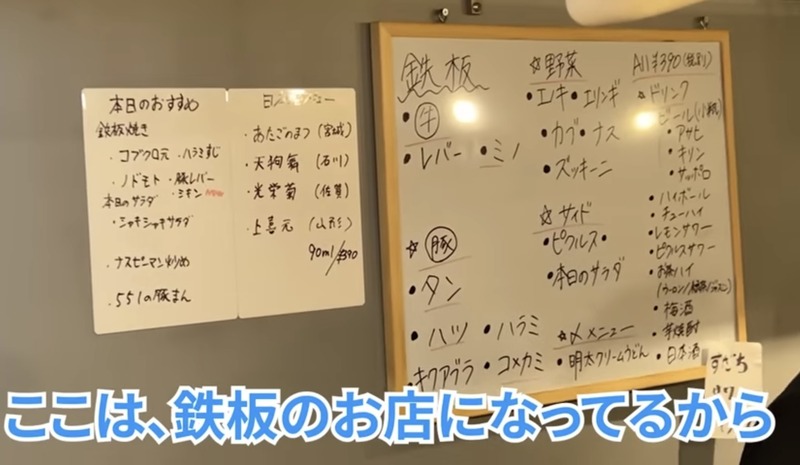 本日のおすすめ
鉄板焼き
・コブクロ元 ・ハラミすじ
・ノドモト ・豚レバー
・ミキン
本日のサラダ
・シャキシャキサラダ
・ナスピーマン炒め
・551の豚まん
・あたごのまつ (宮城)
・天狗舞 (石川)
・光栄菊 (佐賀)
・上喜元 (山形)
90ml/¥390
鉄板
・牛
・レバー ・ミノ
☆豚
・タン
・ハツ ・ハラミ
・キクアブラ ・コメカミ
☆野菜
・エノキ ・エリンギ
・カブ ・ナス
・ズッキーニ
☆サイド
・ピクルス
・本日のサラダ
☆〆メニュー
・明太クリームうどん
All ¥390
☆ドリンク
・ビール(小瓶)
アサヒ
キリン
サッポロ
・ハイボール
・チューハイ
・レモンサワー
・ピクルスサワー
・お茶ハイ
・梅酒
・芋焼酎
・日本酒
すだち
ここは、鉄板のお店になってるから